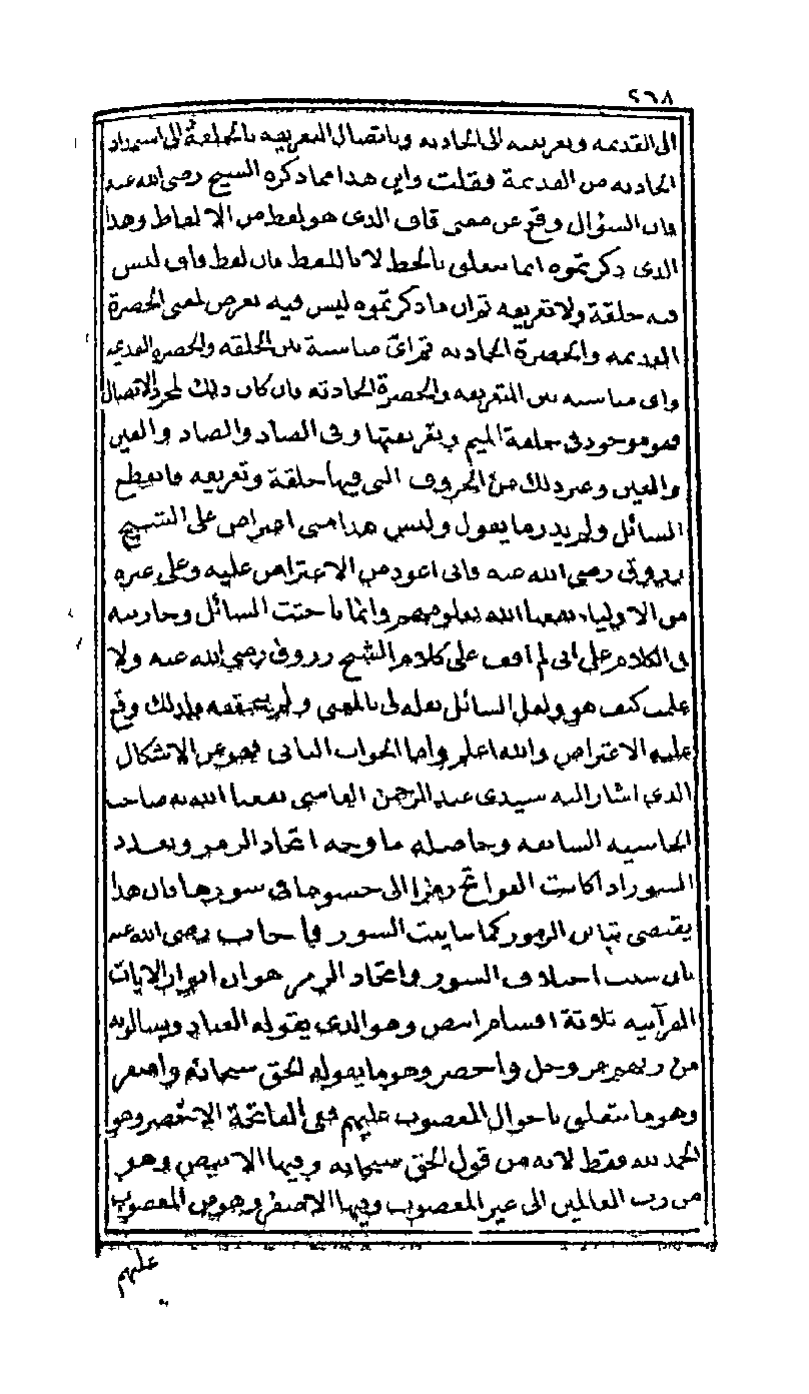 ٢٦٨
الى القديمة وتعريقه الى الحادثة وباتصال التعريقة بالحلقة الى استمداد
الحادثة من القديمة فقلت واين هذا مما ذكره الشيخ رضى الله عنه
فان السؤال وقع عن معنى قاف الذى هو لفظ من الالفاظ وهذا
الذى ذكرتموه انما يتعلق بالخط لا باللفظ فان لفظ قاف ليس
فيه حلقة ولا تعريقة ثم ان ما ذكرتموه ليس فيه تعرض لمعنى الحضرة
القديمة والحضرة الحادثة ثم اى مناسبة بين الحلقة والحضرة القديمة
واى مناسبة بين التعريقة والحضرة الحادثة فان كان ذلك لمجرد الاتصال
فهو موجود فى حلقة الميم وتعريقتها وفى الصاد والضاد والعين
والغين وغير ذلك من الحروف التى فيها حلقة وتعريقة فانقطع
السائل ولم يدر ما يقول وليس هذا منى اعتراض على الشيخ
زروق رضى الله عنه فانى اعوذ من الاعتراض عليه وعلى غيره
من الاولياء نفعنا الله بعلومهم وانما باحثت السائل وجاريته
فى الكلام على انى لم اقف على كلام الشيخ زروق رضى الله عنه ولا
علمت كيف هو ولعل السائل نقله لى بالمعنى ولم يحققه فلذلك وقع
عليه الاعتراض والله اعلم واما الجواب الثانى فهو عن الاشكال
الذى اشار اليه سيدى عبد الرحمن الفاسى نفعنا الله به صاحب
الحاشية السابقة وحاصله ما وجه اتحاد الرمز وتعدد
السور اذا كانت الفواتح رمزا الى حسوما فى سورها فان هذا
يقتضى تباين الرموز كما تباينت السور فاجاب رضى الله عنه
بان سبب اختلاف السور واتحاد الرمز هو ان انوار الايات
القرآنية ثلاثة اقسام ابيض وهو الذى يقوله العباد ويسألونه
من ربهم عز وجل واخضر وهو ما يقوله الحق سبحانه واصفر
وهو ما يتعلق باحوال المغضوب عليهم ففى الفاتحة الاخضر وهو
الحمد لله فقط لانه من قول الحق سبحانه وفيها الابيض وهو
من رب العالمين الى غير المغضوب وفيها الاصفر وهو من المغضوب
عليهم